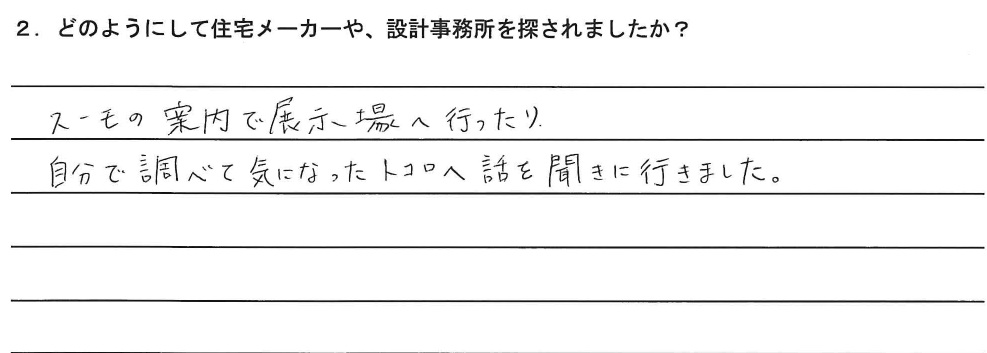 ２．どのようにして住宅メーカーや、設計事務所を探されましたか？
スーモの案内で展示場へ行ったり
自分で調べて気になったトコロへ話を聞きに行きました。